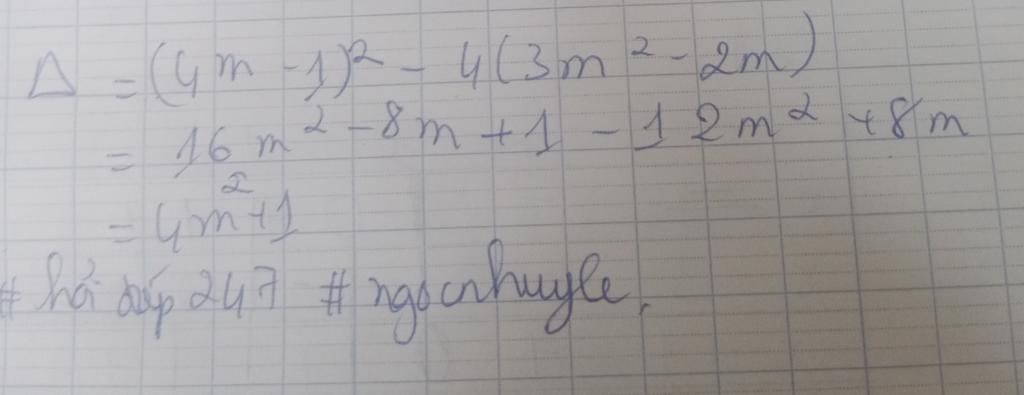 Δ = (4m - 1)² - 4(3m² - 2m)
= 16m² - 8m + 1 - 12m² + 8m
= 4m² + 1
# hỏi đáp 247 # ngocnhuyle.